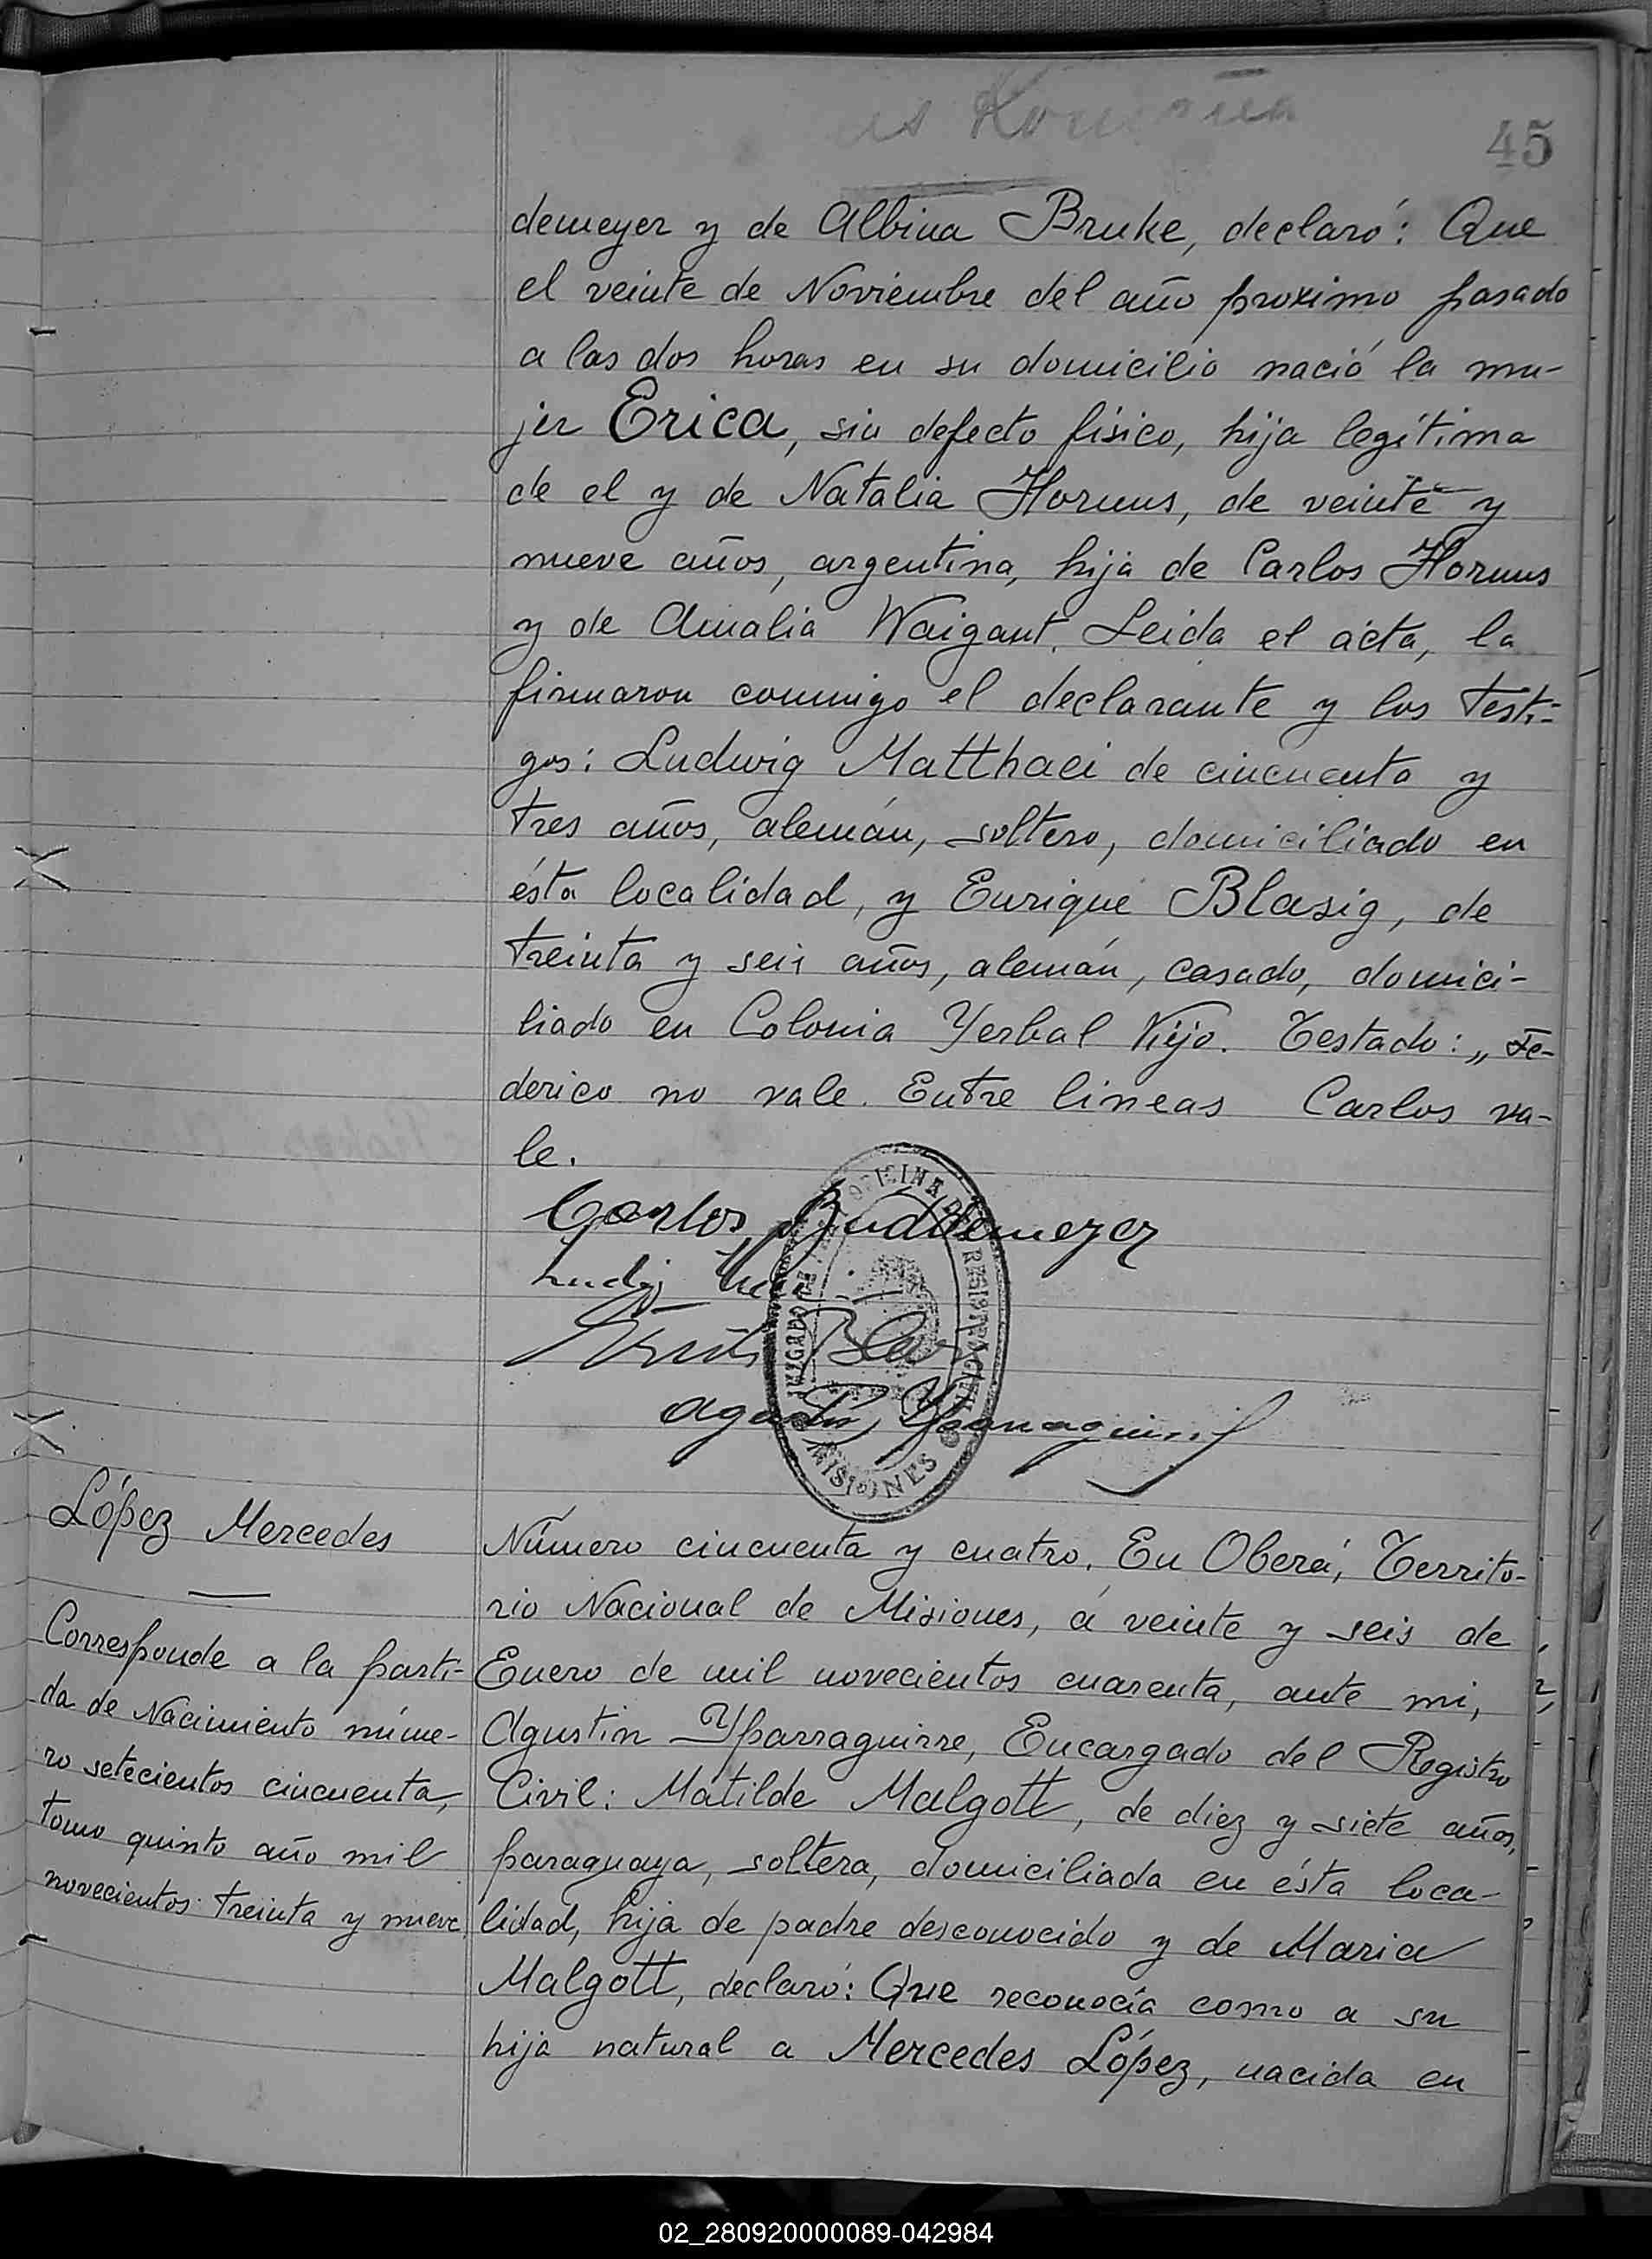 45
demeyer y de Albina Bruke, declaró: Que
el veinte de Noviembre del año proximo pasado
a las dos horas en su domicilio nació la mu-
jer Erica, sin defecto físico, hija legítima
de el y de Natalia Hornus, de veinte y
nueve años, argentina, hija de Carlos Hornus
y de Amalia Waigant. Leida el acta, la
firmaron conmigo el declarante y los testi-
gos: Ludwig Matthaei de cincuenta y
tres años, alemán, soltero, domiciliado en
ésta localidad, y Enrique Blasig, de
treinta y seis años, alemán, casado, domici-
liado en Colonia Yerbal Viejo. Testado: „Fe-
derico no vale. Entre lineas Carlos va-
le.
Carlos Buddemeyer
OFICINA REGISTRO CIVIL
JUZGADO DE
MISIONES
López Mercedes
Corresponde a la parti-
da de Nacimiento núme-
ro setecientos cincuenta,
tomo quinto año mil
novecientos treinta y nueve
Número cincuenta y cuatro. En Oberá, Territo-
rio Nacional de Misiones, á veinte y seis de
Enero de mil novecientos cuarenta, ante mi,
Agustin Yparraguirre, Encargado del Registro
Civil: Matilde Malgott, de diez y siete años,
paraguaya, soltera, domiciliada en ésta loca-
lidad, hija de padre desconocido y de Maria
Malgott, declaró: Que reconocía como a su
hija natural a Mercedes López, nacida en
02_280920000089-042984